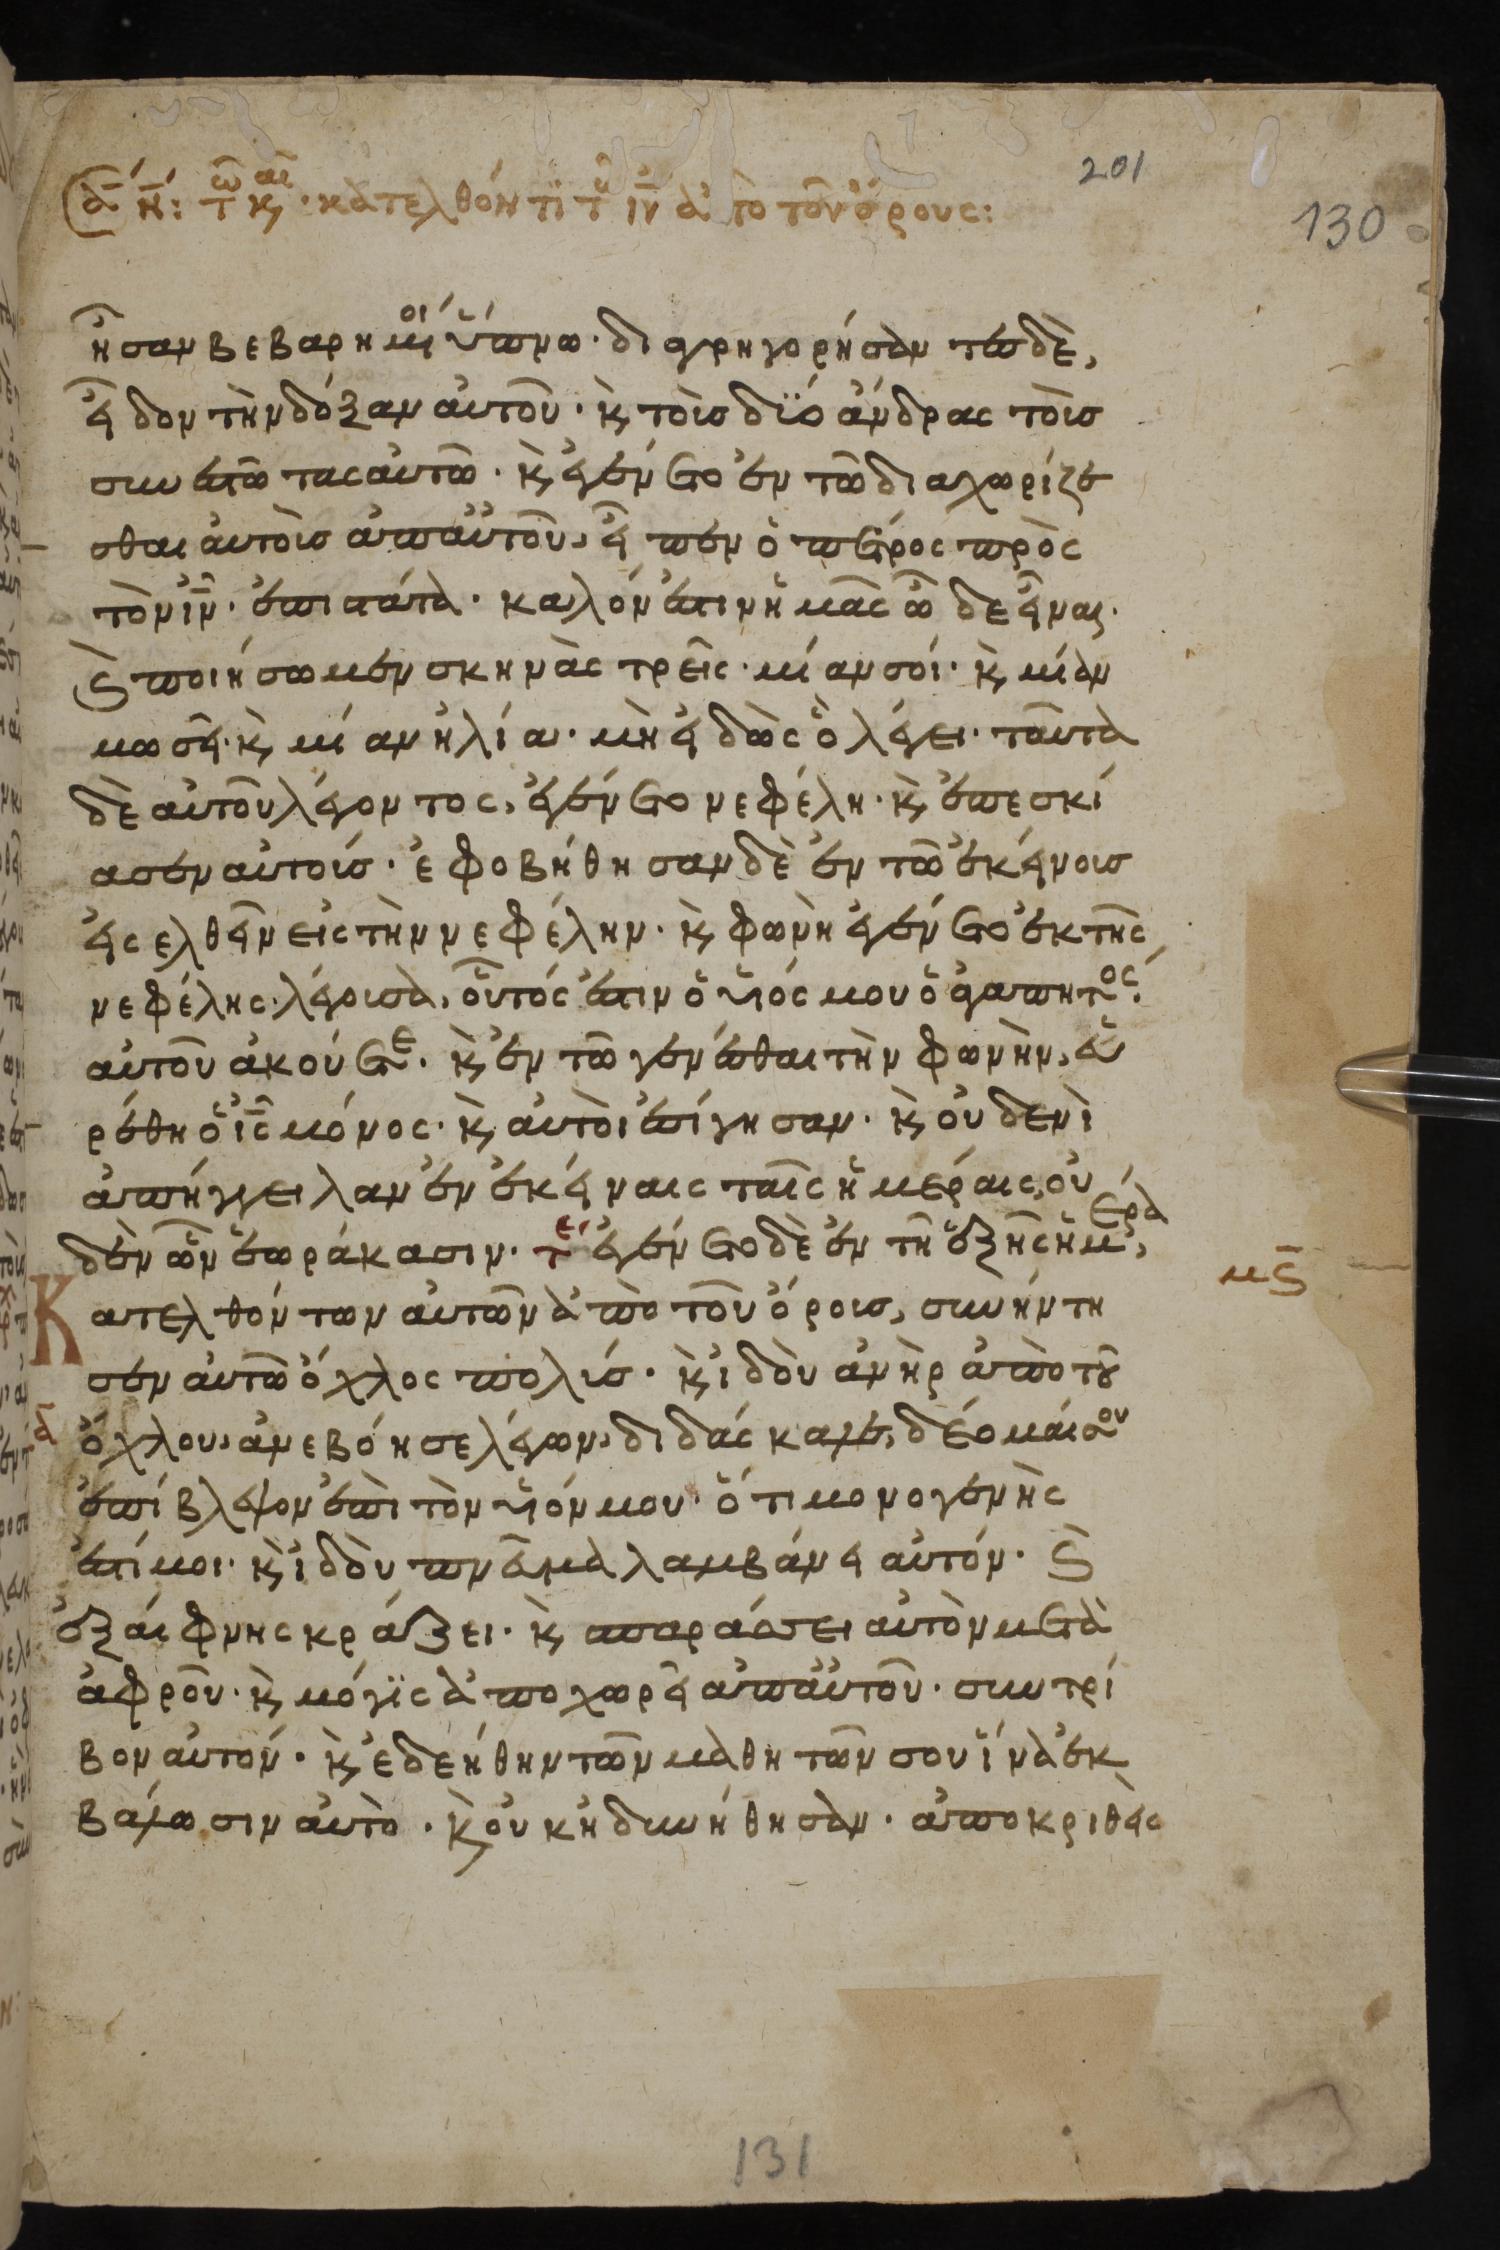 201
130
ἀρχ η: τῶ κ αι· κατελθόντι τῶ ιυ ἀπὸ τοῦ ὄρους:
ἦσαν βεβαρημένοι ὕπνω· διαγρηγορήσαντες δὲ,
εἶδον τὴν δόξαν αὐτοῦ· κ τοὺς δϋο ἄνδρας τοὺς
συνεστῶτας αὐτῶ· κ ἐγένετο ἐν τῶ διαχωρίζε
σθαι αὐτοὺς ἀπ αὐτοῦ, εἶπεν ὁ πέτρος πρὸς
τὸν ιν· ἐπιστάτα· καλόν ἐστιν ἡμᾶς ὧδε εἶναι·
κ ποιήσωμεν σκηνὰς τρεῖς· μίαν σοί· κ μίαν
μωσεῖ· κ μίαν ἠλία· μὴ εἰδὼς ὃ λέγει· ταῦτα
δὲ αὐτοῦ λέγοντος, ἐγένετο νεφέλη· κ ἐπεσκί
ασεν αὐτούς· ἐφοβήθησαν δὲ ἐν τῶ ἐκείνους
εἰσελθεῖν εἰς τὴν νεφέλην· κ φωνὴ ἐγένετο ἐκ τῆς
νεφέλης λέγουσα, οὗτός ἐστιν ὁ υἱός μου ὁ ἀγαπητος·
αὐτοῦ ἀκούετε· κ ἐν τῶ γενέσθαι τὴν φωνὴν, εὑ
ρέθη ὁ ις μόνος· κ αὐτοὶ ἐσίγησαν· κ οὐδενὶ
ἀπήγγειλαν ἐν ἐκείναις ταῖς ἡμέραις, οὐ
δὲν ὧν ἑωράκασιν· τε ἐγένετο δὲ ἐν τῆ ἑξῆς ἡμέρα,
μς
Κατελθόντων αὐτῶν ἀπὸ τοῦ ὄρους, συνήντη
σεν αὐτῶ ὄχλος πολύς· κ ἰδοὺ ἀνὴρ ἀπὸ τοῦ
ὄχλου, ἀνεβόησε λέγων, διδάσκαλε, δέομαί σου
ἐπίβλεψον ἐπὶ τὸν υἱόν μου· ὅτι μονογενὴς
ἐστί μοι· κ ἰδοὺ πνεῦμα λαμβάνει αὐτόν· κ
ἐξαίφνης κράζει· κ σπαράσσει αὐτὸν μετὰ
ἀφροῦ· κ μόγϊς ἀποχωρεῖ ἀπ αὐτοῦ· συντρί
βον αὐτόν· κ ἐδεήθην τῶν μαθητῶν σου ἵνα ἐκ
βάλωσιν αὐτὸ· κ οὐκ ἠδυνήθησαν· ἀποκριθεὶς
131